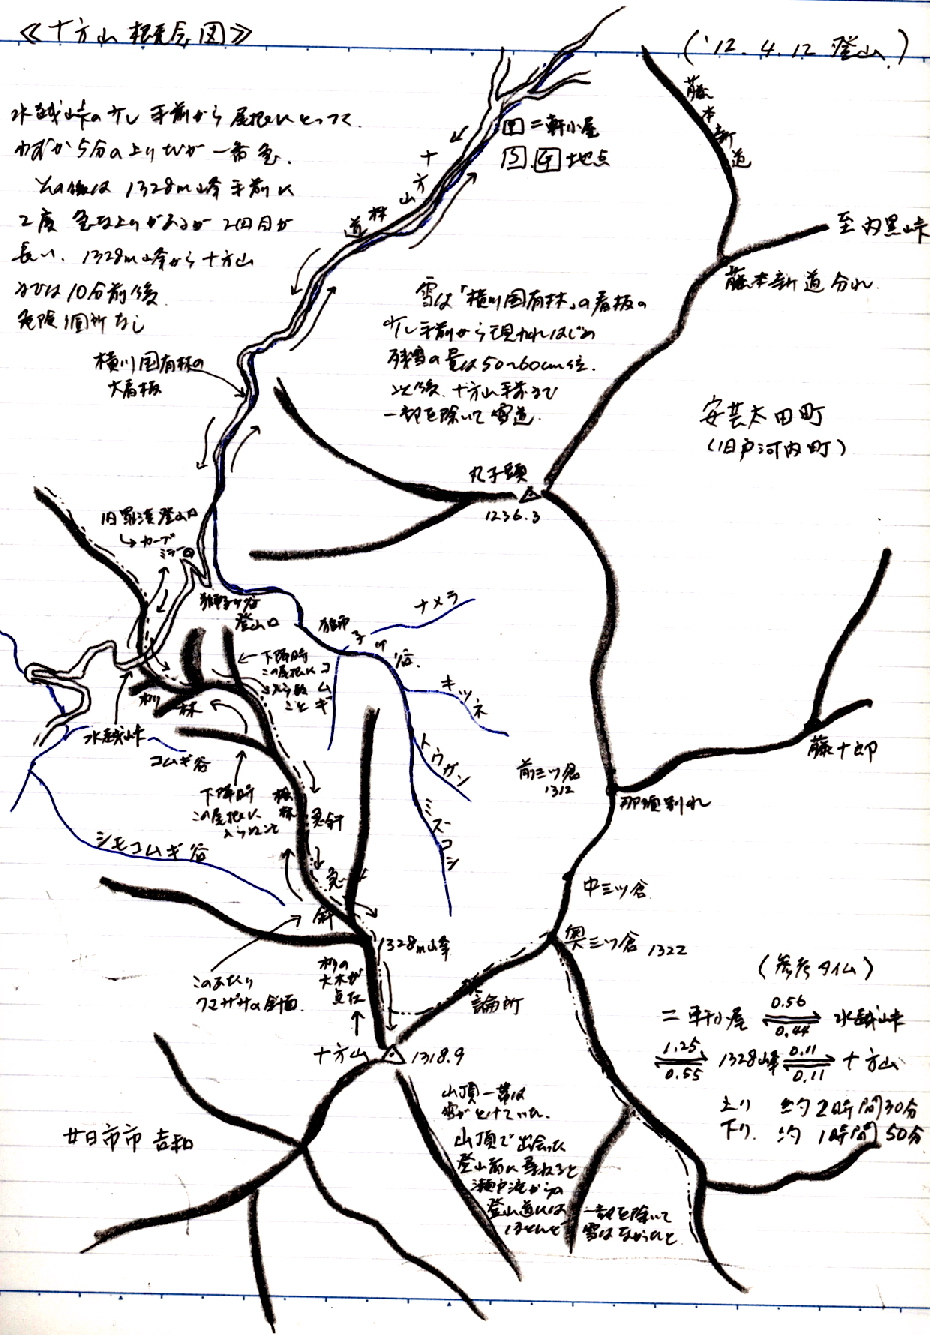 ≪十方山概念図≫
('12.4.12 登山)
水越峠の少し手前から尾根にとりつく
わずか5分の上りだが一番急.
その後は1328m峰手前に
2度急な上りがあるが2回目が
長い. 1328m峰から十方山
までは10分前後.
危険個所なし
藤本新道
二軒小屋
S.G地点
十方山林道
至内黒峠
藤本新道分れ
雪は「横川国有林」の看板の
少し手前から現われはじめ
残雪の量は50~60cm位.
以後. 十方山手前まで
一部を除いて雪道.
横川国有林の
大看板
安芸太田町
(旧戸河内町)
丸子頭
1236.3
旧羅漢登山口
カーブ
ミラー
獅子ケ谷
登山口
獅子ケ谷
ナメラ
キツネ
トウガン
ミズコシ
コムギ
下降時
この尾根に
水越峠
コムギ谷
下降時
この尾根に
入らぬこと
シモコムギ谷
急斜
急斜
前三ツ倉
1312
那須別れ
藤十郎
中三ツ倉
奥三ツ倉 1322
論所
1328m峰
杉の
大木が
点在
このあたり
クマザサの斜面
十方山 1318.9
(参考タイム)
二軒小屋 0.56 0.44 水越峠
1.25 0.55 1328峰 0.11 0.11 十方山
上り 約2時間30分
下り. 約1時間50分
廿日市市 吉和
山頂一帯は
雪がとけていた.
山頂で出会った
登山者に尋ねると
瀬戸滝からの
登山道には
ほとんど
一部を除いて
雪はなかったと